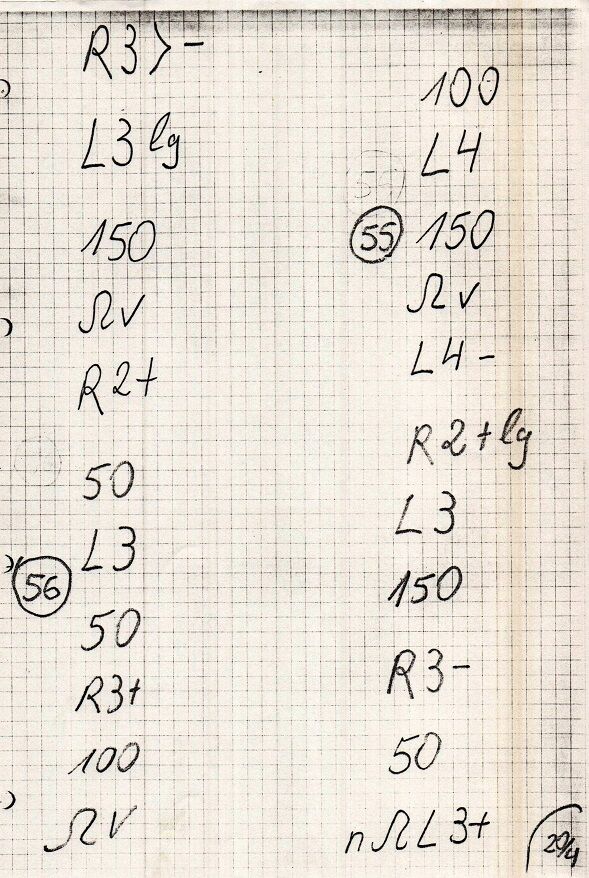 R3>-
L3 lg
150
Ωv
R2+
50
L3
56
50
R3+
100
Ωv
100
L4
55 150
Ωv
L4-
R2+lg
L3
150
R3-
50
nΩL3+
29/4